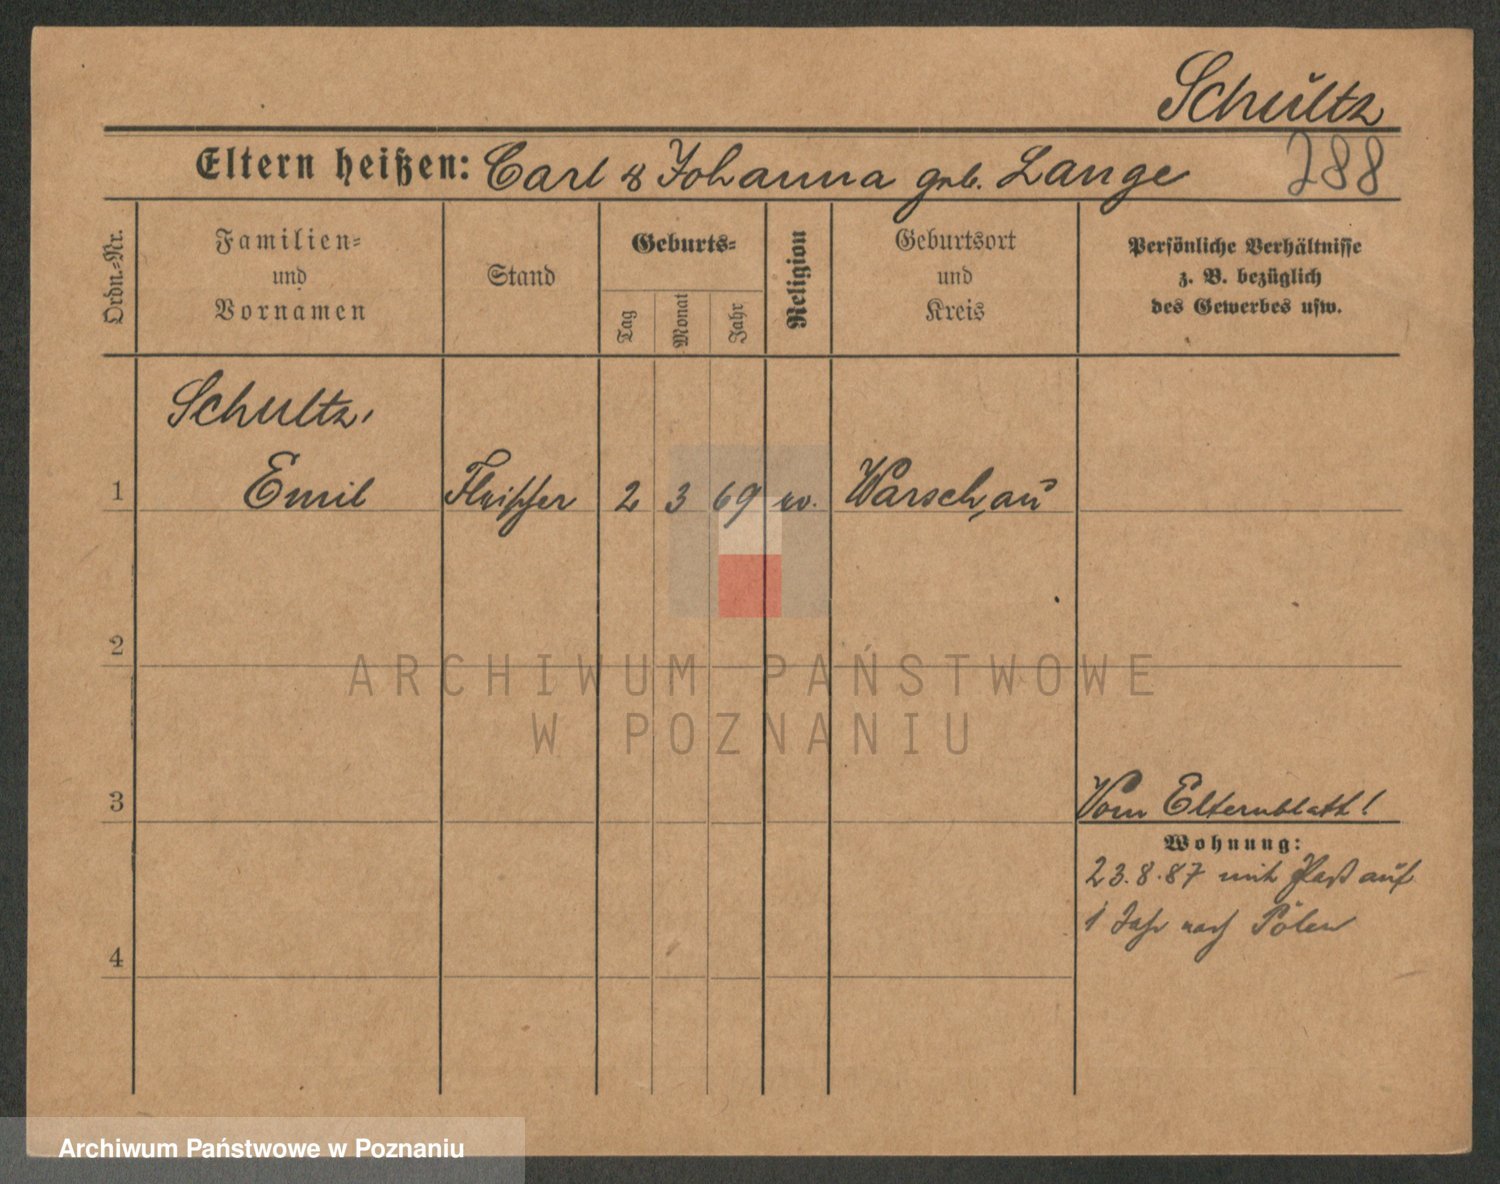 Schultz
Eltern heißen: Carl & Johanna geb. Lange 288
Ordn.-Nr.
Familien-
und
Vornamen
Stand
Geburts-
Tag
Monat
Jahr
Religion
Geburtsort
und
Kreis
Persönliche Verhältnisse
z. B. bezüglich
des Gewerbes usw.
Schultz,
1 Emil Fleischer 2 3 69 ev. Warschau
2
ARCHIWUM PAŃSTWOWE
W POZNANIU
3 Vom Elternblatt!
Wohnung:
23.8.87 mit Paß auf
1 Jahr nach Polen
4
Archiwum Państwowe w Poznaniu